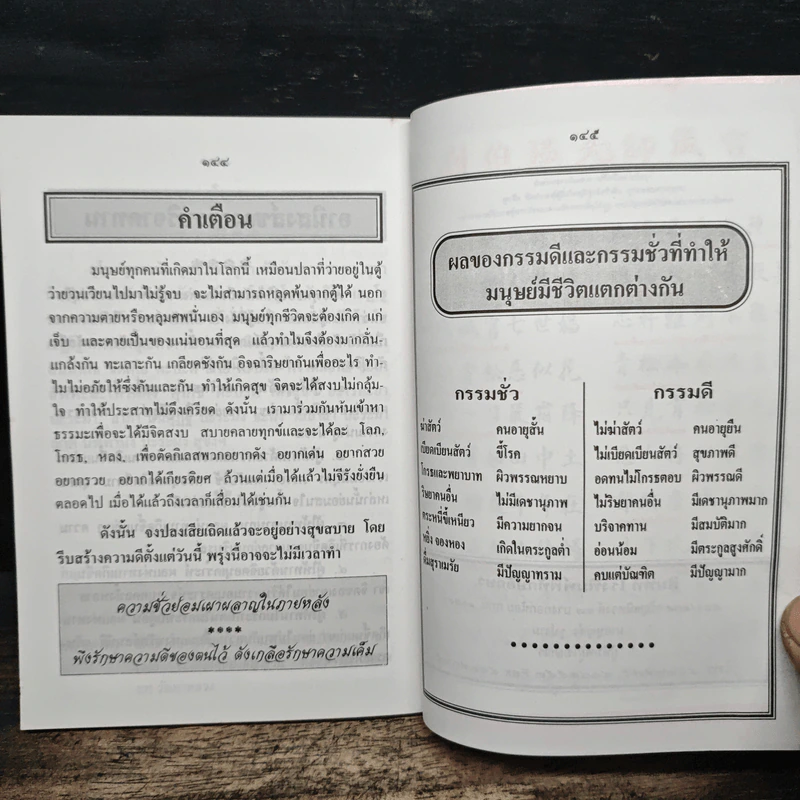 ๑๔๔
คำเตือน
มนุษย์ทุกคนที่เกิดมาในโลกนี้ เหมือนปลาที่ว่ายอยู่ในตู้
ว่ายวนเวียนไปมาไม่รู้จบ จะไม่สามารถหลุดพ้นจากตู้ได้ นอก
จากความตายหรือหลุมศพนั่นเอง มนุษย์ทุกชีวิตจะต้องเกิด แก่
เจ็บ และตายเป็นของแน่นอนที่สุด แล้วทำไมจึงต้องมากลั่น-
แกล้งกัน ทะเลาะกัน เกลียดชังกัน อิจฉาริษยากันเพื่ออะไร ทำ-
ไมไม่อภัยให้ซึ่งกันและกัน ทำให้เกิดสุข จิตจะได้สงบไม่กลุ้ม-
ใจ ทำให้ประสาทไม่ตึงเครียด ดังนั้น เรามาร่วมกันหันเข้าหา
ธรรมะเพื่อจะได้มีจิตสงบ สบายคลายทุกข์และจะได้ละ โลภ,
โกรธ, หลง, เพื่อตัดกิเลสพวกอยากดัง อยากเด่น อยากสวย
อยากรวย อยากได้เกียรติยศ ล้วนแต่เมื่อได้แล้วไม่จีรังยั่งยืน
ตลอดไป เมื่อได้แล้วถึงเวลาก็เสื่อมได้เช่นกัน
ดังนั้น จงปลงเสียเถิดแล้วจะอยู่อย่างสุขสบาย โดย
รีบสร้างความดีตั้งแต่วันนี้ พรุ่งนี้อาจจะไม่มีเวลาทำ
ความชั่วย่อมเผาผลาญในภายหลัง
****
พึงรักษาความดีของตนไว้ ดังเกลือรักษาความเค็ม
๑๔๕
ผลของกรรมดีและกรรมชั่วที่ทำให้
มนุษย์มีชีวิตแตกต่างกัน
กรรมชั่ว กรรมดี
ฆ่าสัตว์ คนอายุสั้น ไม่ฆ่าสัตว์ คนอายุยืน
เบียดเบียนสัตว์ ขี้โรค ไม่เบียดเบียนสัตว์ สุขภาพดี
โกรธและพยาบาท ผิวพรรณหยาบ อดทนไม่โกรธตอบ ผิวพรรณดี
ริษยาคนอื่น ไม่มีเดชานุภาพ ไม่ริษยาคนอื่น มีเดชานุภาพมาก
ตระหนี่ขี้เหนียว มีความยากจน บริจาคทาน มีสมบัติมาก
หยิ่ง จองหอง เกิดในตระกูลต่ำ อ่อนน้อม มีตระกูลสูงศักดิ์
ดื่มสุราเมรัย มีปัญญาทราม คบแต่บัณฑิต มีปัญญามาก